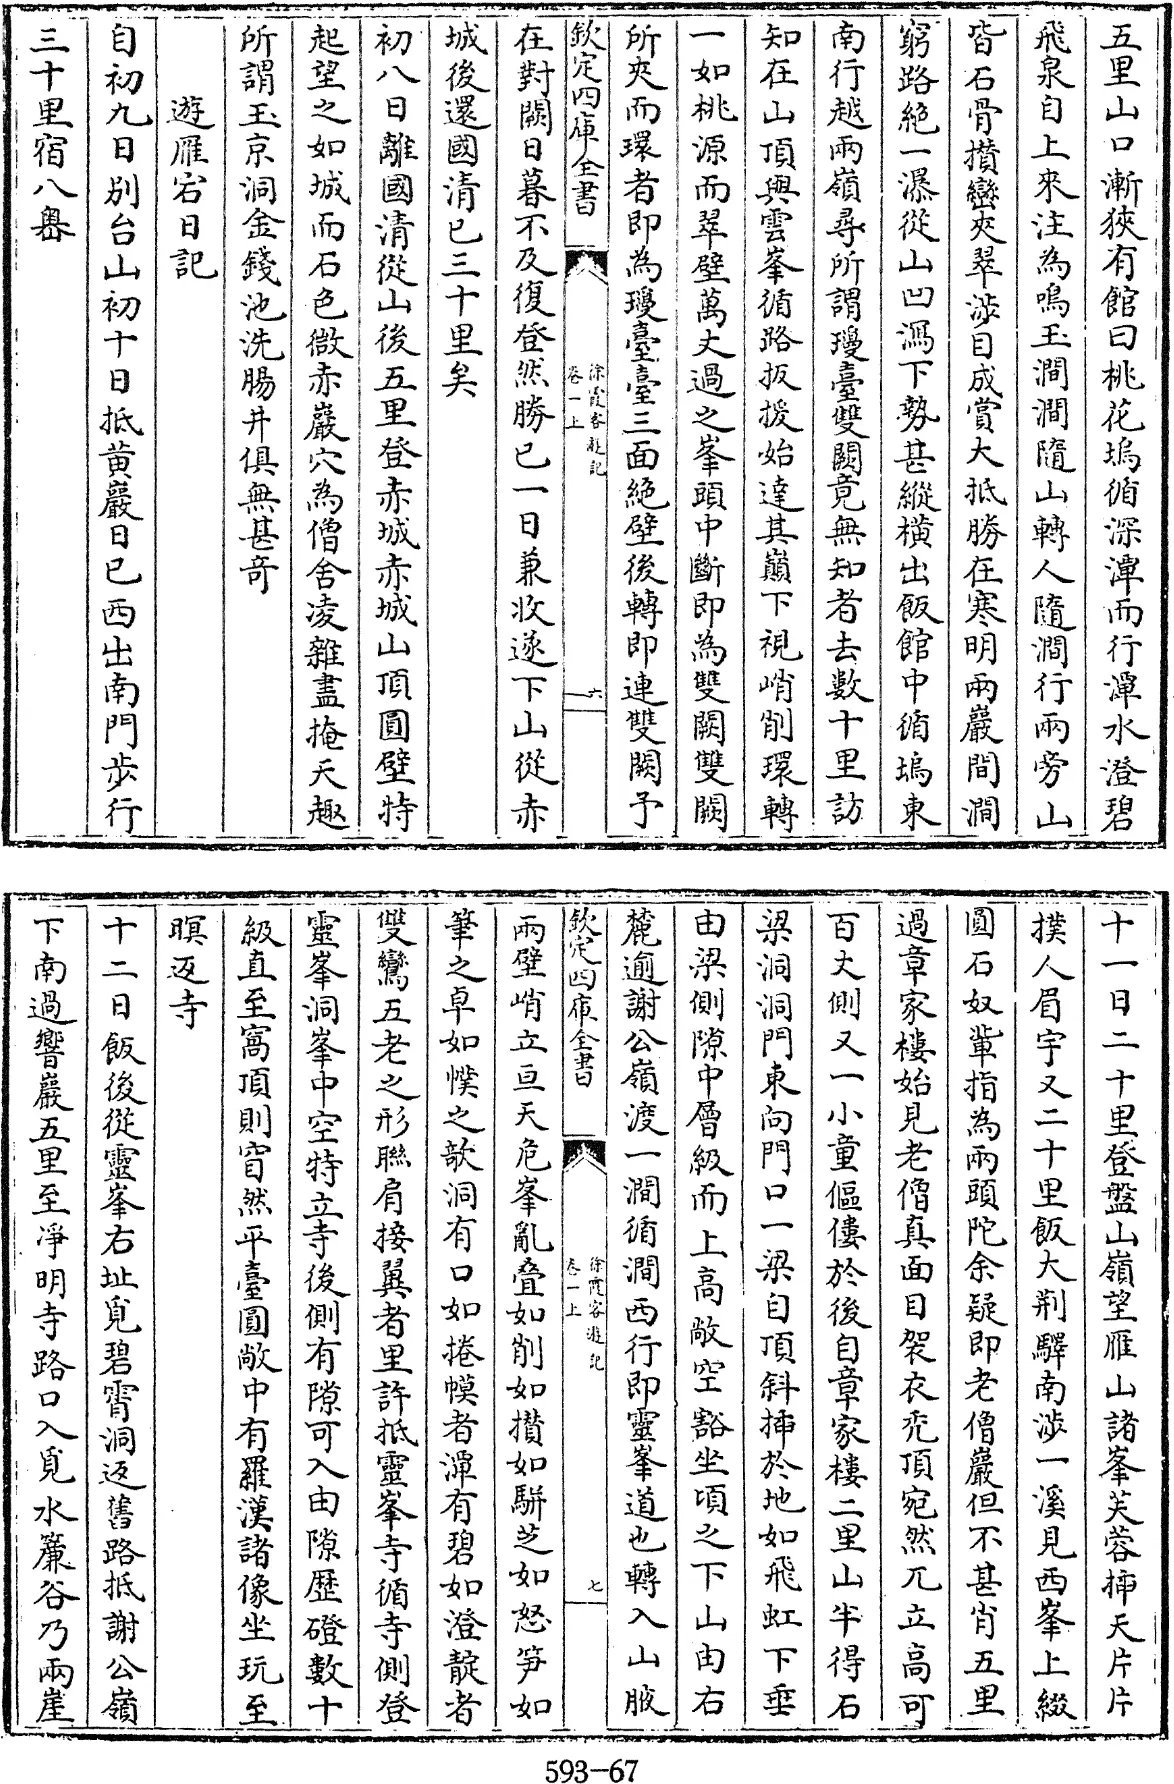 五里山口漸狹有館曰桃花塢循深潭而行潭水澄碧
飛泉自上來注為鳴玉澗澗隨山轉人隨澗行兩旁山
皆石骨攢巒夾翠渉目成賞大抵勝在寒明兩巖間澗
窮路絶一瀑從山凹瀉下勢甚縱橫出飯館中循塢東
南行越兩嶺尋所謂瓊臺雙闕竟無知者去數十里訪
知在山頂與雲峯循路扳援始達其巔下視峭削環轉
一如桃源而翠壁萬丈過之峯頭中斷即為雙闕雙闕
所夾而環者即為瓊臺臺三面絶壁後轉即連雙闕予
欽定四庫全書
徐霞客遊記
卷一上
六
在對闕日暮不及復登然勝已一日兼收遂下山從赤
城後還國清已三十里矣
初八日離國清從山後五里登赤城赤城山頂圓壁特
起望之如城而石色微赤巖穴為僧舍凌雜盡掩天趣
所謂玉京洞金錢池洗腸井俱無甚竒
遊雁宕日記
自初九日別台山初十日抵黄巖日已西出南門歩行
三十里宿八嶴
十一日二十里登盤山嶺望雁山諸峯芙蓉挿天片片
撲人眉宇又二十里飯大荆驛南渉一溪見西峯上綴
圓石奴輩指為兩頭陀余疑即老僧巖但不甚肖五里
過章家樓始見老僧真面目袈衣禿頂宛然兀立高可
百丈側又一小童傴僂於後自章家樓二里山半得石
梁洞洞門東向門口一梁自頂斜挿於地如飛虹下垂
由梁側隙中層級而上高敞空豁坐頃之下山由右
麓逾謝公嶺渡一澗循澗西行即靈峯道也轉入山腋
欽定四庫全書
徐霞客遊記
卷一上
七
兩壁峭立亘天危峯亂疊如削如攢如駢芝如怒笋如
筆之卓如幞之欹洞有口如捲幙者潭有碧如澄靛者
雙鸞五老之形聯肩接翼者里許抵靈峯寺循寺側登
靈峯洞峯中空特立寺後側有隙可入由隙歴磴數十
級直至窩頂則窅然平臺圓敞中有羅漢諸像坐玩至
暝返寺
十二日飯後從靈峯右址覓碧霄洞返舊路抵謝公嶺
下南過響巖五里至凈明寺路口入覓水簾谷乃兩崖
593-67